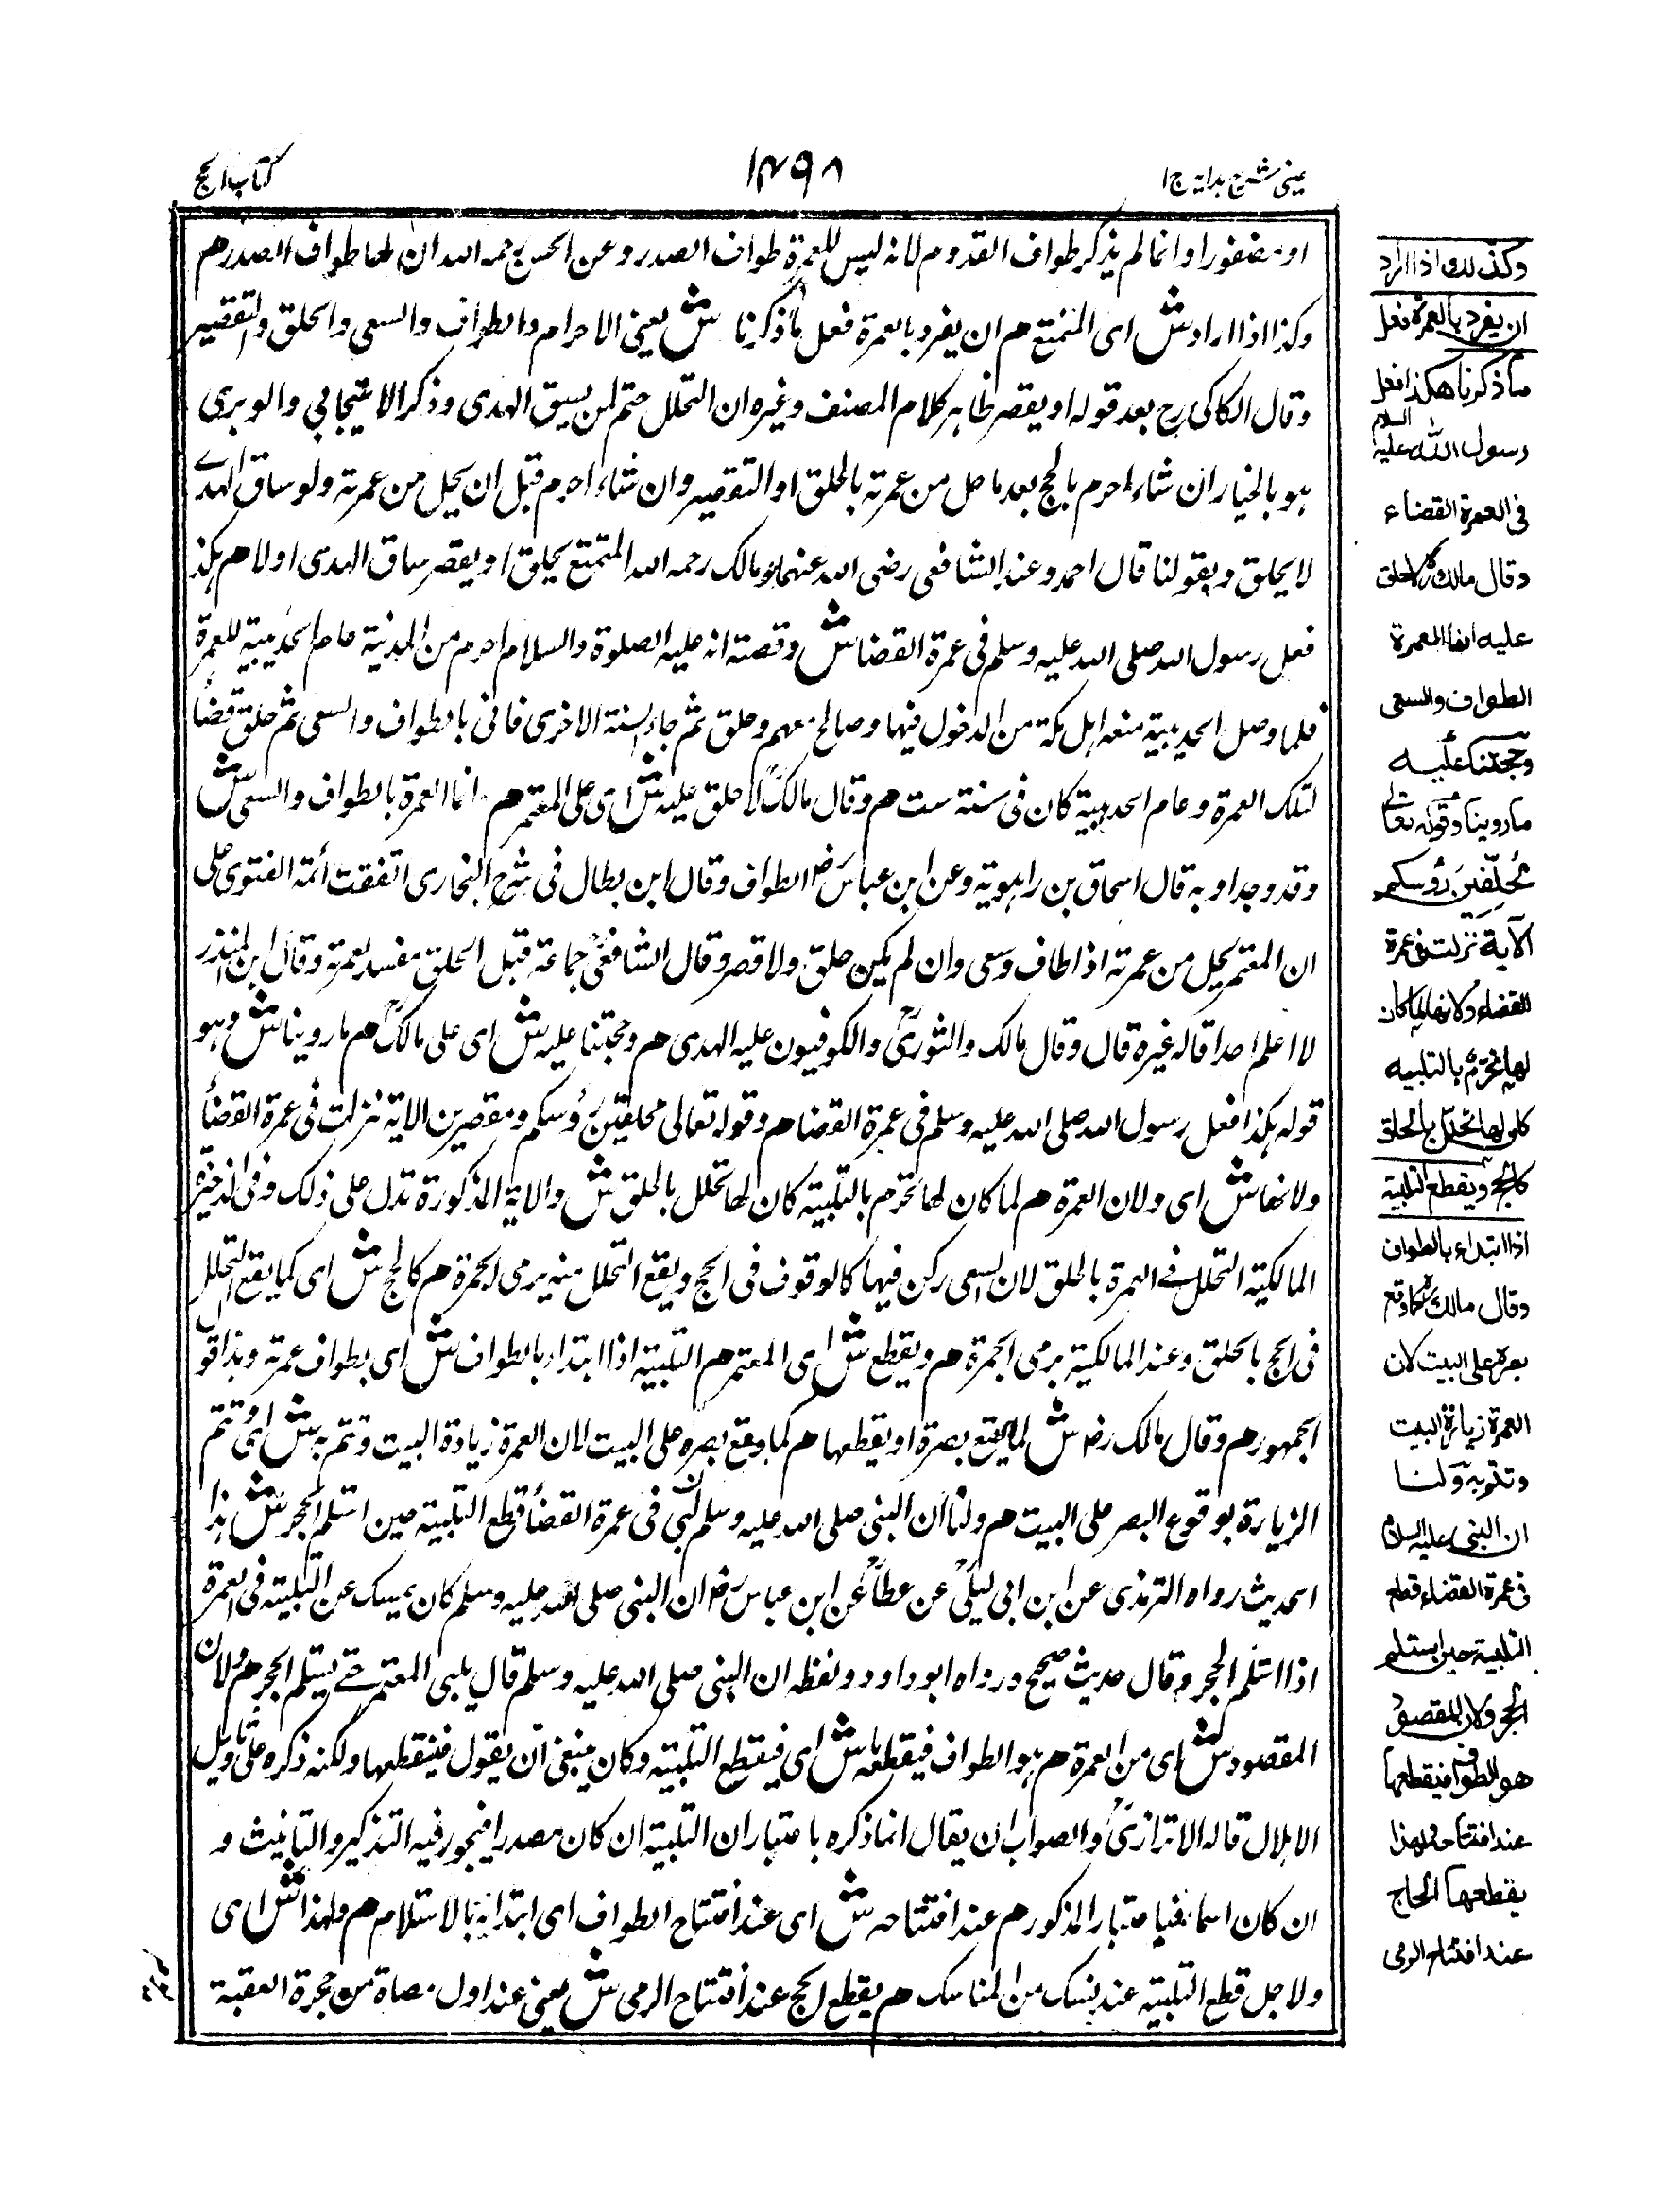 عينى شرح هداية ج ١
١٤٩٨
كتاب الحج
او مضفورا وانما لم يذكر طواف القدوم لانه ليس للعمرة طواف الصدر وعن الحسن رحمه الله ان لها طواف الصدر هم
وكذا اذا اراد ش اى المتمتع هم ان يفرد بالعمرة فعل ما ذكرنا ش يعنى الاحرام والطواف والسعى والحلق والتقصير
وقال الكاكى رح بعد قوله او يقصر ظاهر كلام المصنف وغيره ان التحلل حتم لمن لم يسق الهدى وذكر الاسبيجابي والوبرى
هو بالخيار ان شاء احرم بالحج بعد ما حل من عمرته بالحلق او التقصير وان شاء احرم قبل ان يحل من عمرته ولو ساق الهدى
لا يحلق وبقولنا قال احمد وعند الشافعى رضى الله عنهما ومالك رحمه الله المتمتع يحلق او يقصر ساق الهدى او لا هم هكذا
فعل رسول الله صلى الله عليه وسلم فى عمرة القضا ش وقصته انه عليه الصلوة والسلام احرم من المدينة عام الحديبية للعمرة
فلما وصل الحديبية منعه اهل مكة من الدخول فيها وصالح معهم وحلق ثم جاء السنة الاخرى فاتى بالطواف والسعى ثم حلق قضأ
لتلك العمرة وعام الحديبية كان فى سنة ست هم وقال مالك لا حلق عليه ش اى على المعتمر هم انما العمرة بالطواف والسعى ش
وقد وجدا وبه قال اسحاق بن راهوية وعن ابن عباس رض الطواف وقال ابن بطال فى شرح البخارى اتفقت أئمة الفتوى على
ان المعتمر يحل من عمرته اذا طاف وسعى وان لم يكن حلق ولا قصر وقال الشافعى جماعة قبل الحلق مفسد لعمرته وقال ابن المنذر
لا اعلم احدا قاله غيره قال وقال مالك والثورى والكوفيون عليه الهدى هم وحجتنا عليه ش اى على مالك هم ما روينا ش وهو
قوله هكذا فعل رسول الله صلى الله عليه وسلم فى عمرة القضا هم وقوله تعالى محلقين رؤسكم ومقصرين الاية نزلت فى عمرة القضأ
ولانها ش اى ولان العمرة هم لما كان لها تحرم بالتلبية كان لها تحلل بالحلق ش والاية المذكورة تدل على ذلك وفى الذخيرة
المالكية التحلل فى العمرة بالحلق لان السعى ركن فيها كالوقوف فى الحج ويقع التحلل منه برمى الجمرة هم كالحج ش اى كما يقع التحلل
فى الحج بالحلق وعند المالكية برمى الجمرة هم ويقطع ش اى المعتمر هم التلبية اذا ابتداء بالطواف ش اى بطواف عمرته وهذا قول
الجمهور هم وقال مالك رض ش كما يقع بصره او يقطعها هم كما وقع بصره على البيت لان العمرة زيادة البيت وتتم به ش اى وتتم
الزيارة بوقوع البصر على البيت هم ولنا ان النبى صلى الله عليه وسلم لبى فى عمرة القضأ قطع التلبية حين استلم الحجر ش هذا
الحديث رواه الترمذى عن ابن ابى ليلى عن عطأ عن ابن عباس رض ان النبى صلى الله عليه وسلم كان يمسك عن التلبية فى العمرة
اذا استلم الحجر وقال حديث صحيح ورواه ابوداود ولفظه ان النبى صلى الله عليه وسلم قال يلبى المعتمر حتى يستلم الحجر هم ولان
المقصود ش اى من العمرة هم هو الطواف فيقطعها ش اى فيقطع التلبية وكان ينبغى ان يقول فيقطعها ولكنه ذكره على تاويل
الاهلال قاله الاترازى والصواب ان يقال انما ذكره باعتبار ان التلبية ان كان مصدرا فيجوز فيه التذكير والتانيث و
ان كان اسما فباعتبار المذكور هم عند افتتاحه ش اى عند افتتاح الطواف اى ابتدائه بالاستلام هم ولهذا ش اى
ولاجل قطع التلبية عند نسك من المناسك هم يقطع الحج عند افتتاح الرمى ش يعنى عند اول حصاة من جمرة العقبة
وكذلك اذا اراد
ان يفرد بالعمرة فعل
ما ذكرنا هكذا فعل
رسول الله عليه السلام
فى العمرة القضاء
وقال مالك لا حلق
عليه انما العمرة
الطواف والسعى
وحجتنا عليه
ما روينا وقوله تعالى
محلّقين رؤسكم
الآية نزلت فى عمرة
القضاء ولانها لما كان
لها تحرّم بالتلبيه
كان لها تحلّل بالحلق
كالحج ويقطع التلبية
اذا ابتداء بالطواف
وقال مالك كما وقع
بصره على البيت لان
العمرة زيارة البيت
وتتم به ولنا
ان النبى عليه السلام
فى عمرة القضاء قطع
التلبية حين استلم
الحجر ولان المقصود
هو الطواف فيقطعها
عند افتتاحه ولهذا
يقطعها الحاج
عند افتتاح الرمى